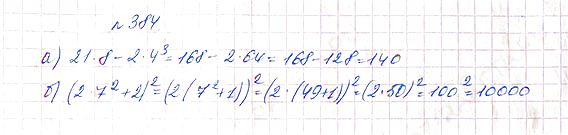 № 384
а) 21·8 - 2·4³ = 168 - 2·64 = 168 - 128 = 140
б) (2·7²+2)² = (2(7²+1))² = (2·(49+1))² = (2·50)² = 100² = 10000